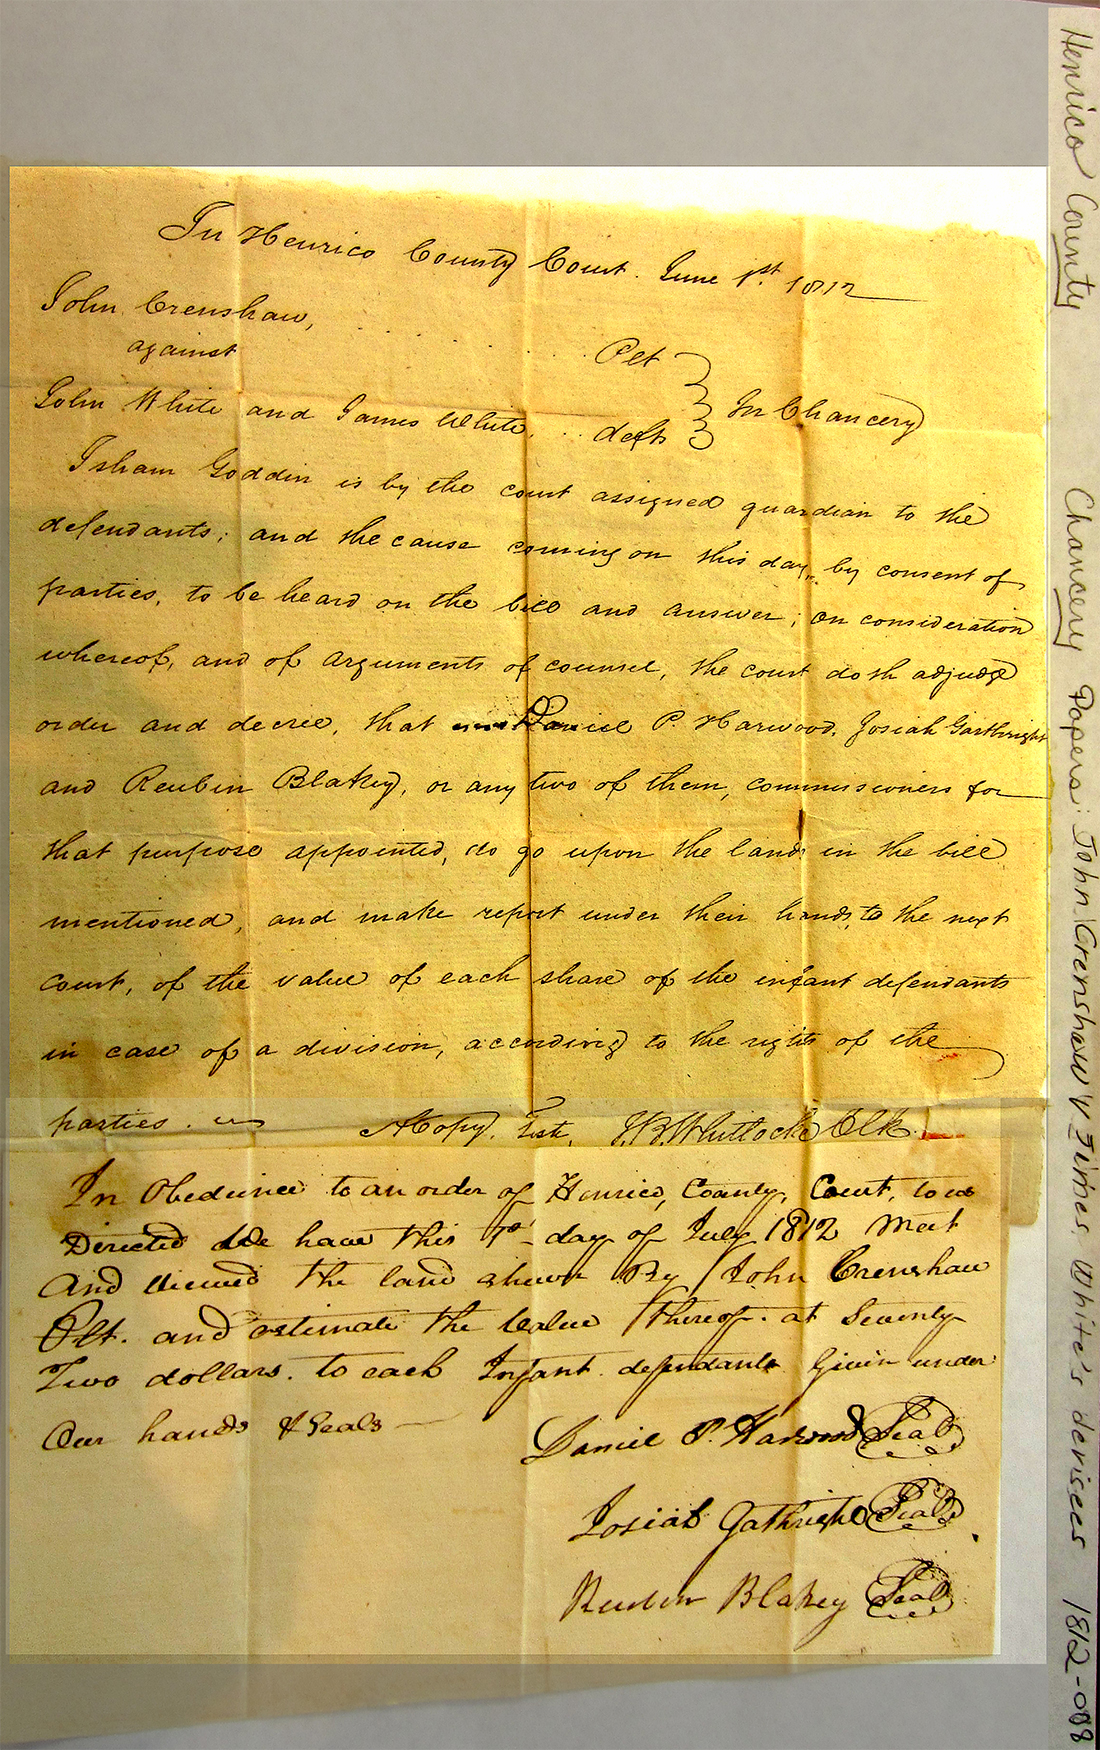 In Henrico County Court. June 1st. 1812
John Crenshaw,
against
Plt
John White and James White, defts
In Chancery
Isham Goddin is by the court assigned guardian to the
defendants; and the cause coming on this day, by consent of
parties, to be heard on the bill and answer; on consideration
whereof, and of arguments of counsel, the court doth adjudge
order and decree, that Daniel P. Harwood, Josiah Garthright
and Reubin Blakey, or any two of them, commissioners for
that purpose appointed, do go upon the lands in the bill
mentioned, and make report under their hands, to the next
court, of the value of each share of the infant defendants
in case of a division, according to the rights of the
parties.
A Copy, Teste, J.B. Whitlock Clk.
In Obedience to an order of Henrico, County, Court, to us
Directed We have this day of July 1812 Meet
And Viewed the land shewn By John Crenshaw
Plt. and estimate the Value thereof. at Seventy
Two dollars. to each Infant defendants Given under
Our hands & Seals
Daniel P. Harwood Seal
Josiah Gathright Seal
Reubin Blakey Seal
Henrico County Chancery Papers: John Crenshaw v James White's devisees 1812-008